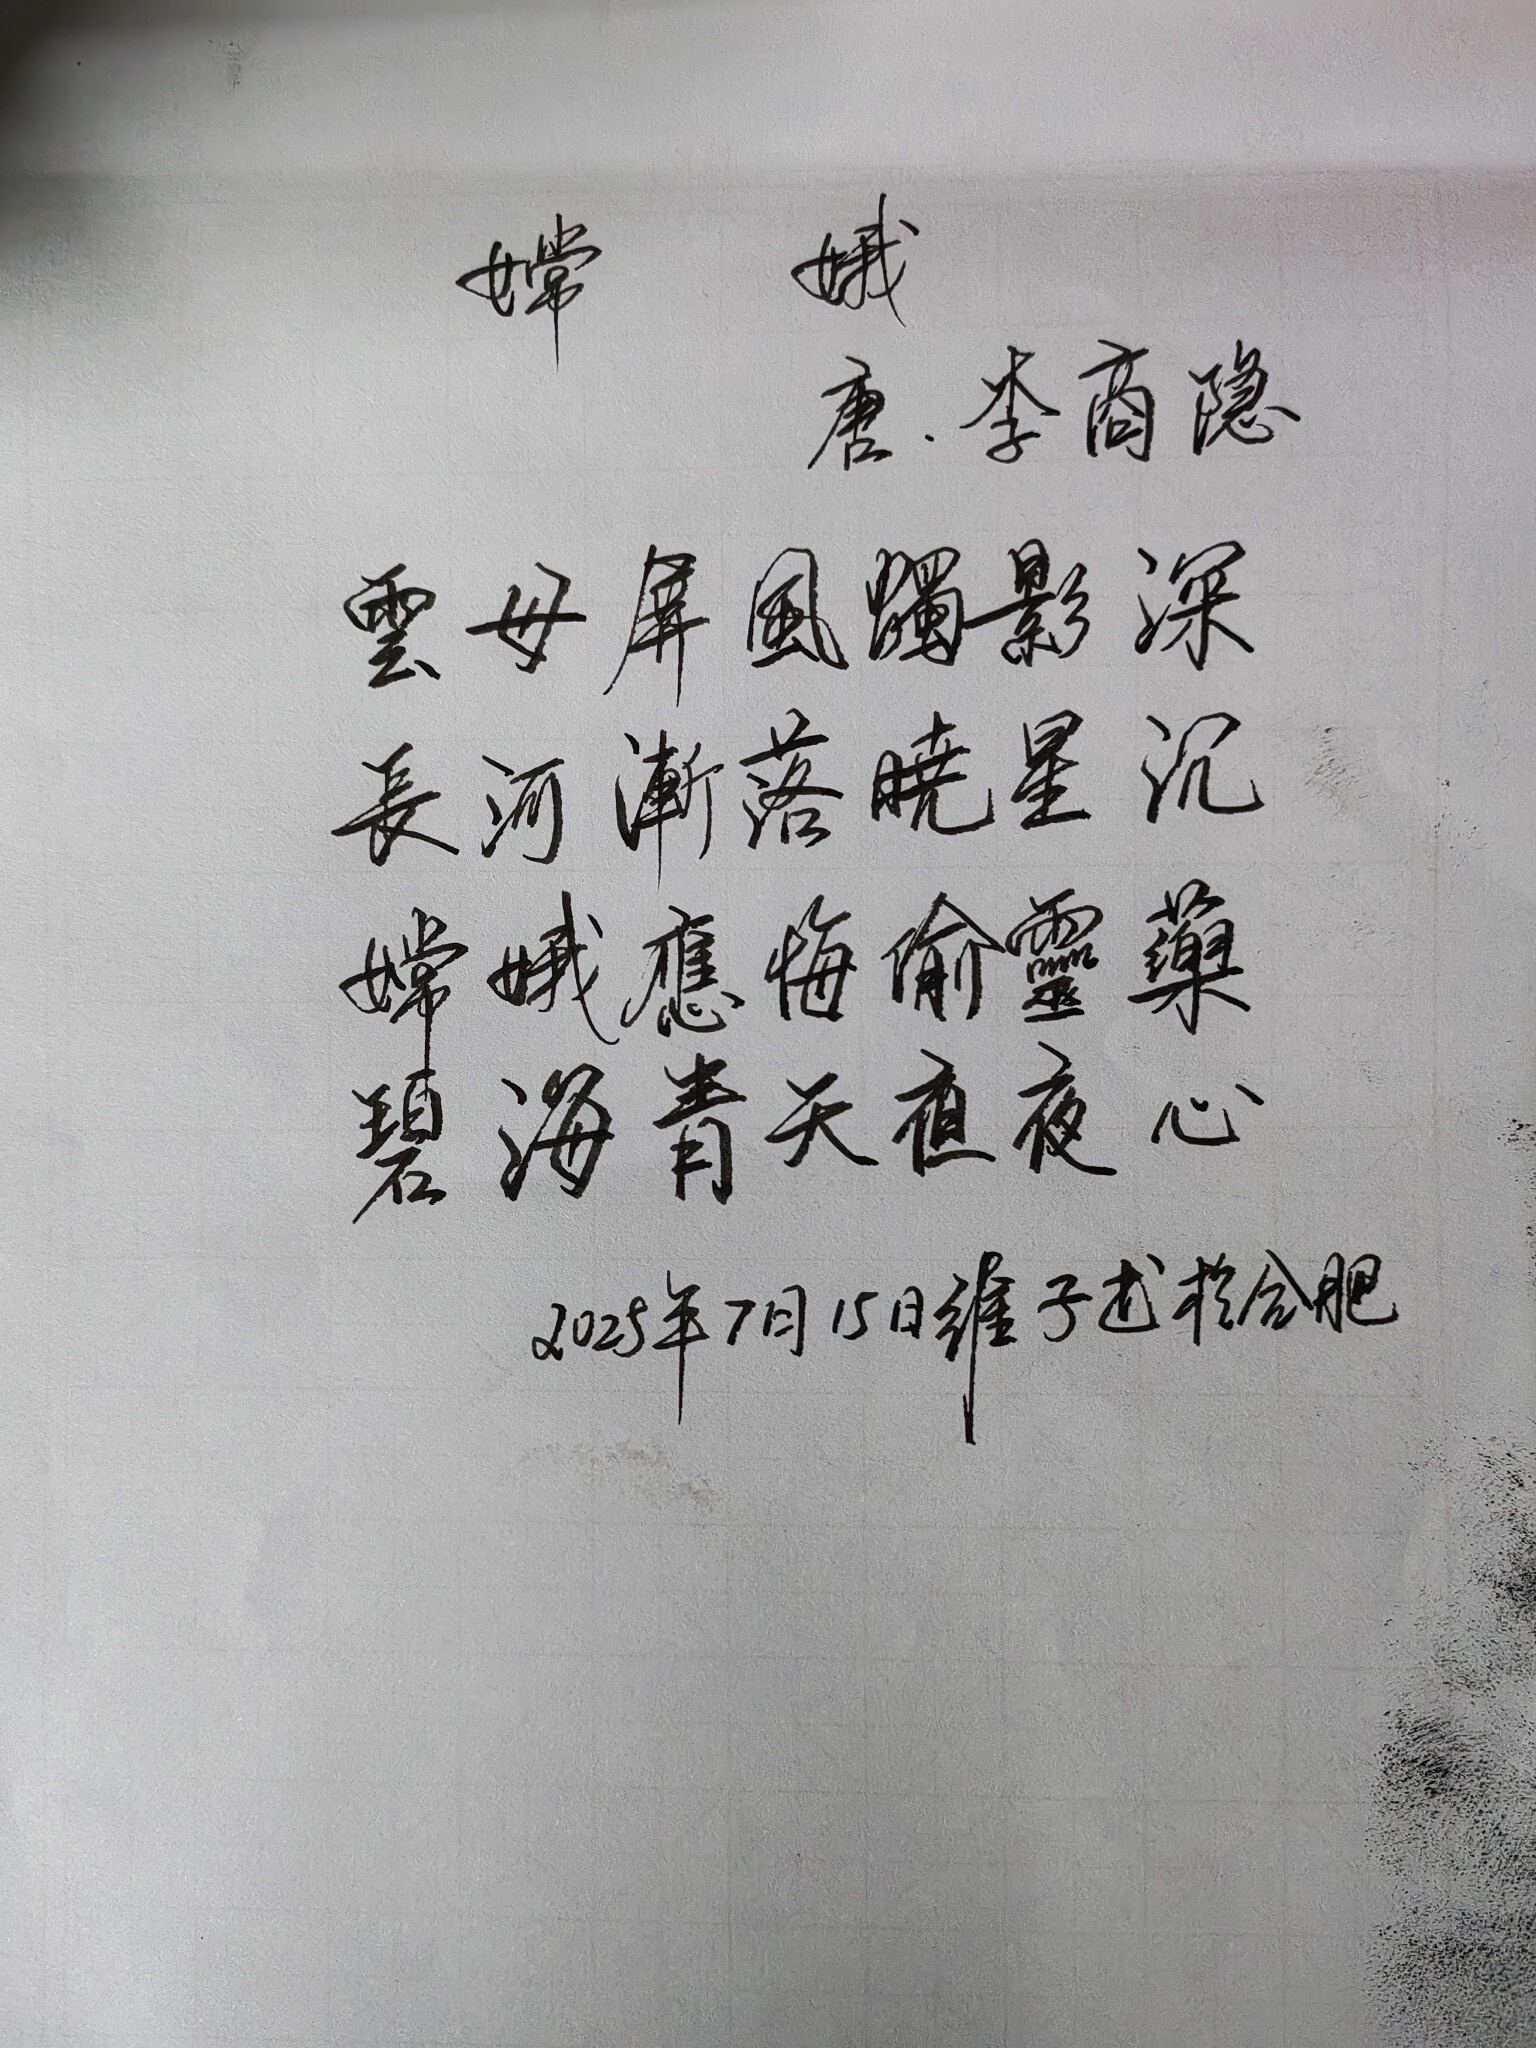 嫦娥
唐.李商隐
雲母屏風燭影深
長河漸落曉星沉
嫦娥應悔偷靈藥
碧海青天夜夜心
2025年7月15日维子书於合肥